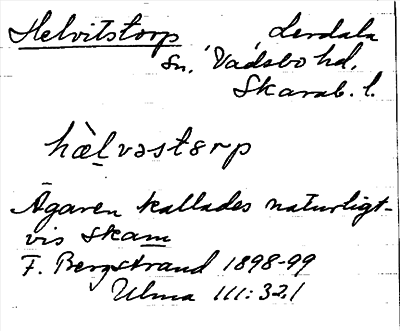 Helvitstorp Lerdala
sn, Vadsbo hd,
Skarab. l.
hæ̀l̲vəstɘrp
Ägaren kallades naturligt-
vis skam
F. Bergstrand 1898-99
Ulma 111:32.1